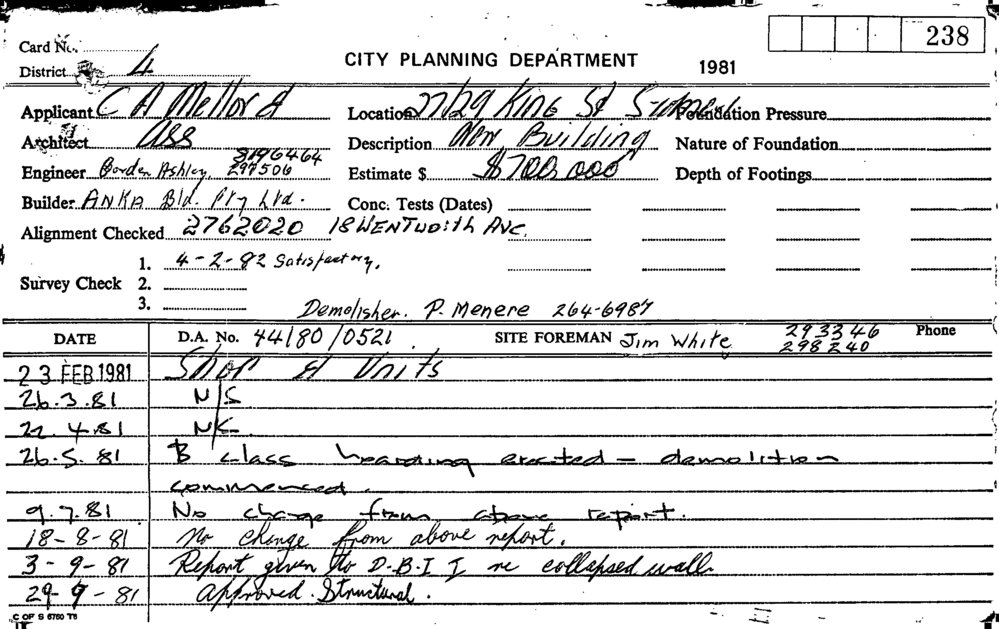 238
Card No.
CITY PLANNING DEPARTMENT 1981
District 4
Applicant C A Mellor & Location 27/29 King St Foundation Pressure
Architect Ass Description New Building Nature of Foundation
8196464
Engineer Borden Ashley. 297506 Estimate $ $700,000 Depth of Footings
Builder ANKA Bld. Pty Ltd. Conc. Tests (Dates)
Alignment Checked 2762020 18 WENTWORTH AVC.
1. 4-2-82 Satisfactory.
Survey Check 2.
3.
Demolisher. P. Menere 264-6987
DATE D.A. No. 44/80/0521. SITE FOREMAN Jim White 293346 Phone
298240
23 FEB 1981 Shop & Units
26.3.81 N/S
22.4.81 N/S
26.5.81 B class hoarding erected – demolition
commenced.
9.7.81 No change from above report.
18-8-81 No change from above report.
3-9-81 Report given to D.B.I I re collapsed wall.
29-9-81 Approved Structural.
C OF S 6750 T6